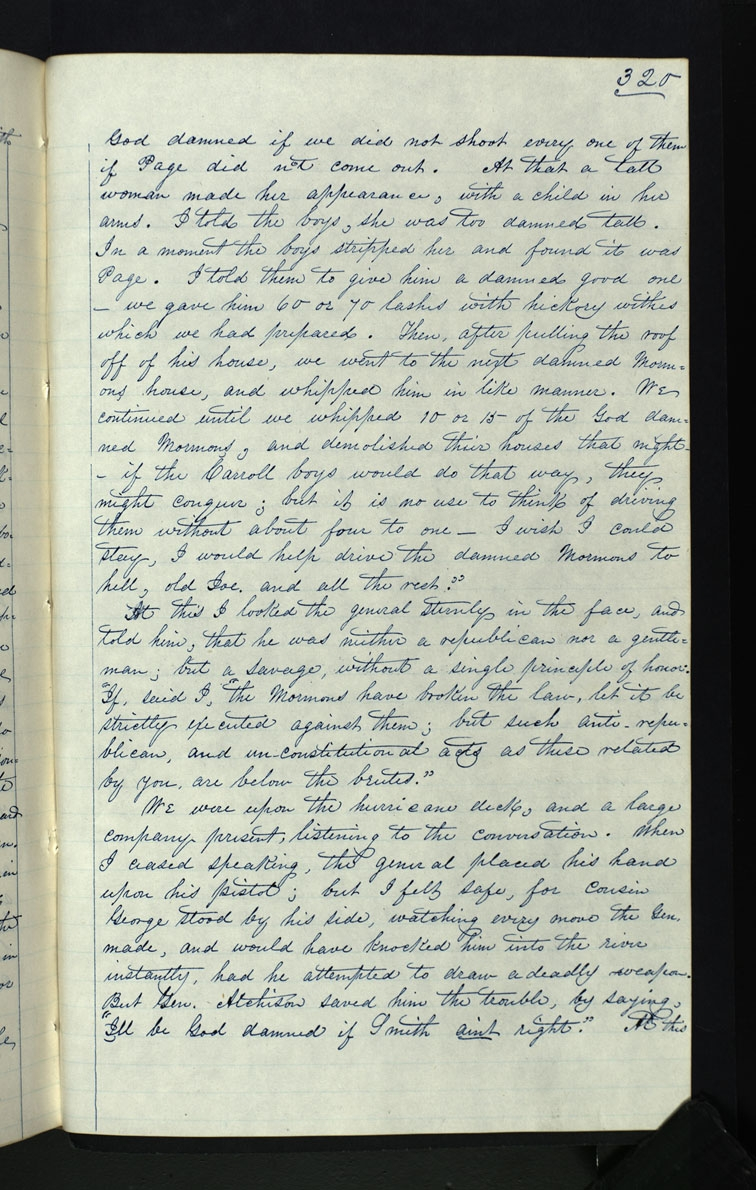 320
God damned if we did not shoot every one of them
if Page did not come out. At that a tall
woman made her appearance, with a child in her
arms. I told the boys, she was too damned tall.
In a moment the boys stripped her and found it was
Page. I told them to give him a damned good one
– we gave him 60 or 70 lashes with hickory withes
which we had prepared. Then, after pulling the roof
off of his house, we went to the next damned Morm=
ons house, and whipped him in like manner. We
continued until we whipped 10 or 15 of the God dam=
ned Mormons, and demolished their houses that night
– if the Carroll boys would do that way, they
might conquer; but it is no use to think of driving
them without about four to one – I wish I could
stay, I would help drive the damned Mormons to
hell, old Joe. and all the rest."
At this I looked the general sternly in the face, and
told him, that he was neither a republican nor a gentle=
man; but a savage, without a single principle of honor.
"If, said I, "the Mormons have broken the law, let it be
strictly executed against them; but such anti-repu=
blican, and un-constitutional acts as these related
by you, are below the brutes."
We were upon the hurricane deck, and a large
company present, listening to the conversation. When
I ceased speaking, the general placed his hand
upon his pistol; but I felt safe, for cousin
George stood by his side, watching every move the Gen.
made, and would have knocked him into the river
instantly, had he attempted to draw a deadly weapon.
But Gen. Atchison saved him the trouble, by saying,
"I'll be God damned if Smith aint right." At this